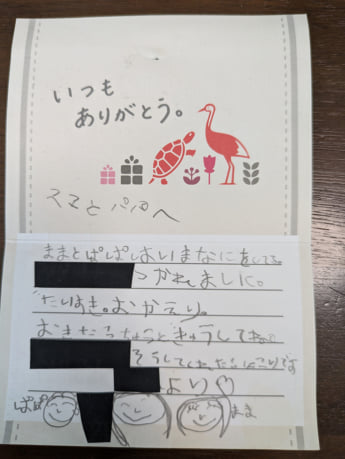 いつも
ありがとう。
ママとパパへ
ままとぱぱはいまなにをしてる
つかれました。
だいすき。おかえり。
おきたらちゅうとぎゅうしてね。
そうしてくれたらにこりです
より♡
ぱぱ
まま